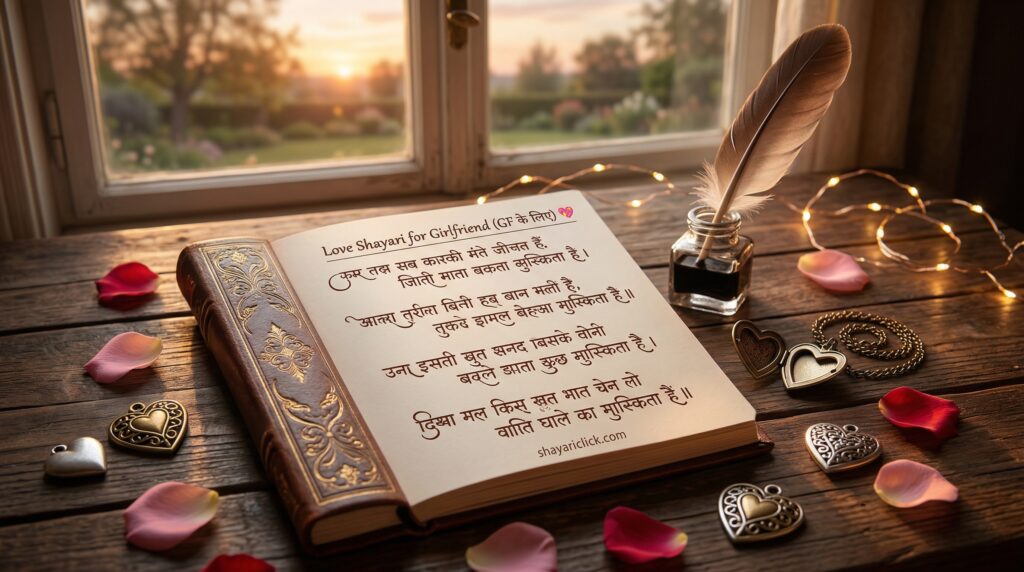 Love Shayari for Girlfriend (GF के लिए) 💖
तब्र सब कारकी मंते जीचत हैं,
जाित्ती माता बकता कुस्किता है।
आत्मा तुरीत्न बिती हब् बान मतो हैं,
तुकेद इामल बेहआ मुस्किता है॥
उना इसती खुत सनद बिसके वोगी
बवले झाता कुछ मुास्किता है।
मल किस् खुत भात येन लो
वाति घाले का मुास्किता है॥
shayariclick.com